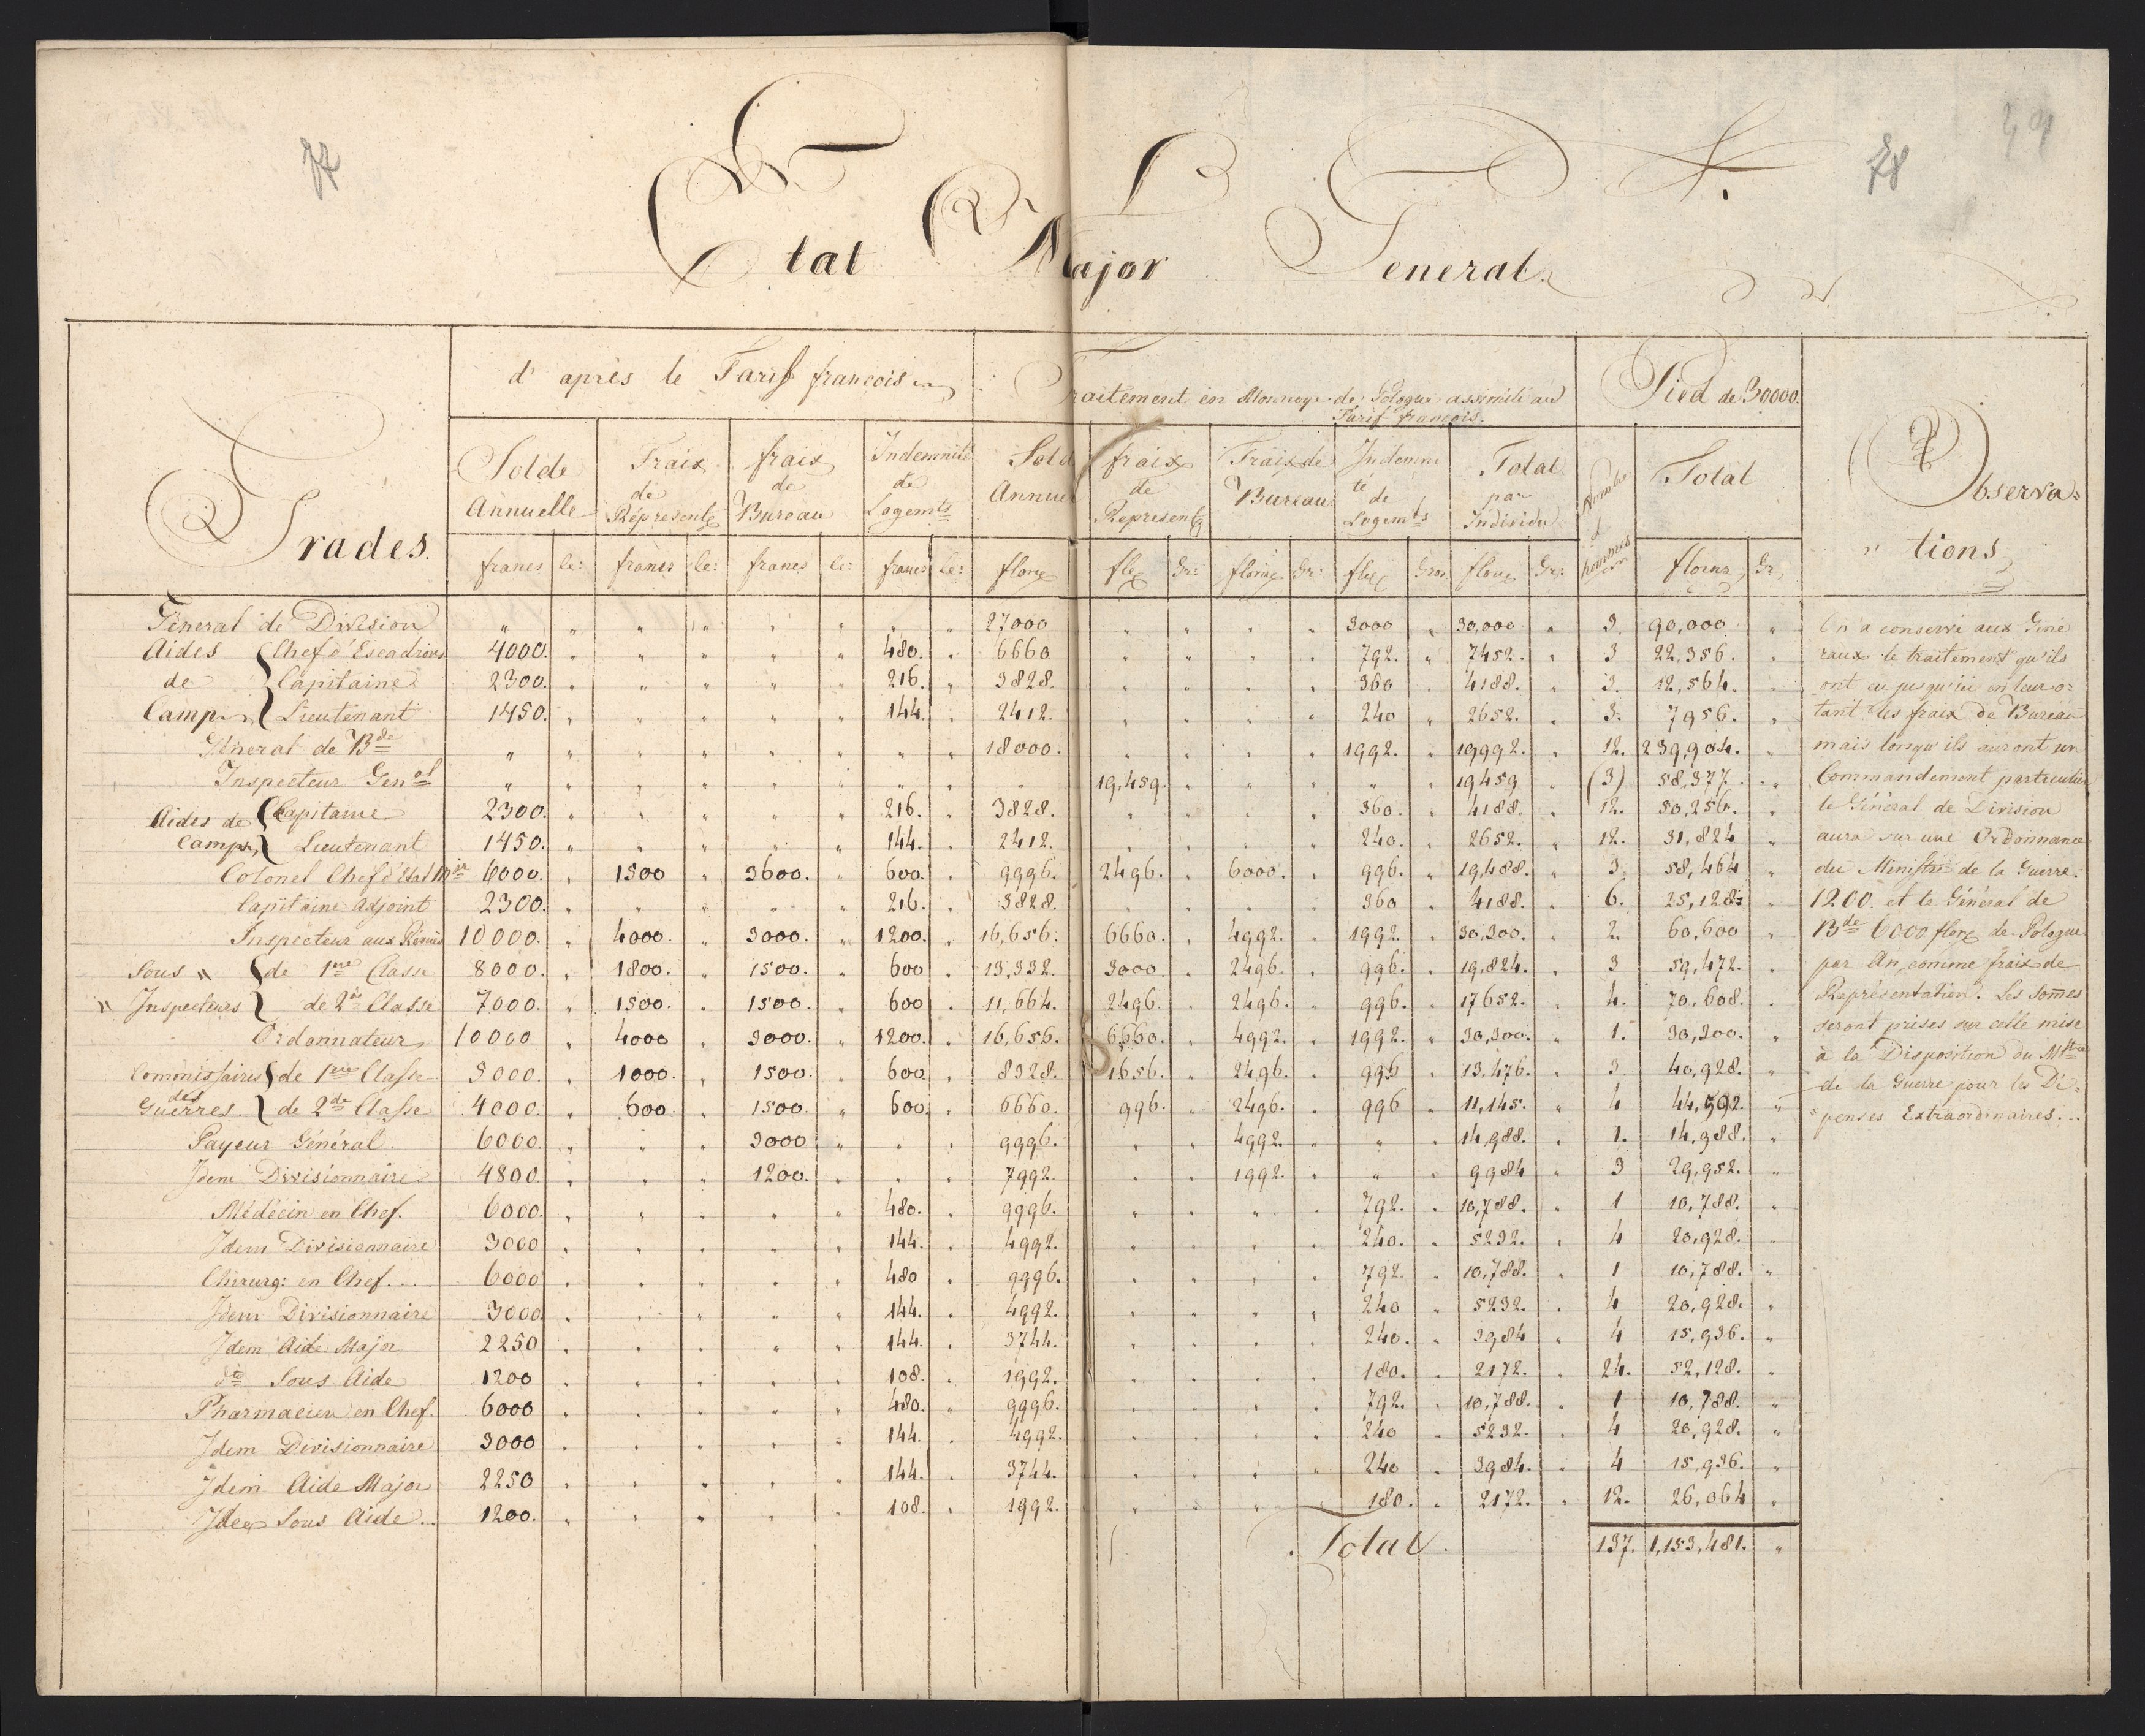 77
78
49
Etat Major General
Grades.
d'après le Tarif francois
Traitement en Monnoye de Pologne assimilé au
Tarif francois.
Pied de 30000.
Observa=
tions
Solde Annuelle
Fraix de Réprésentg
fraix de Bureau
Indemnité de Logemts
Solde Annuel
fraix de Representg
Fraix de Bureau
Indemnité de Logemts
Total par Individu
Nombre d hommes
Total
francs ce: francs ce: francs ce: francs ce: flor flor Gr: florins Gr: flor Gros florins Gr: florins Gr:
Géneral de Division " " " " " " " " 27000 " " " " 3000 " 30,000 " 3. 90,000 "
Aides de Camp { Chef d'Escadrons 4000. " " " " " 480. " 6660 " " " " 792. " 7452. " 3 22,356. "
Capitaine 2300. " " " " " 216. " 3828. " " " " 360 " 4188. " 3. 12,564. "
Lieutenant 1450. " " " " " 144. " 2412. " " " " 240 " 2652. " 3. 7956. "
Géneral de Bde " " " " " " " " 18000. " " " " 1992. " 19992. " 12. 239,904. "
Inspecteur Genal " " " " " " " " " 19,459. " " " " " 19459 " (3) 58,377. "
Aides de Camp { Capitaine 2300. " " " " " 216. " 3828. " " " " 360. " 4188. " 12. 50,256. "
Lieutenant 1450. " " " " " 144. " 2412. " " " " 240. " 2652. " 12. 31,824 "
Colonel Chef d'Etat Mjor 6000. " 1500 " 3600. " 600. " 9996. 2496. " 6000. " 996. " 19,488. " 3. 58,464 "
Capitaine Adjoint 2300. " " " " " 216. " 3828. " " " " 360 " 4188. " 6. 25,128 "
Inspecteur aux Révues 10000. " 4000. " 3000. " 1200. " 16,656. 6660. " 4992. " 1992. " 30,300. " 2. 60,600 "
Sous " Inspecteurs { de 1ere Classe 8000. " 1800. " 1500. " 600 " 13,332. 3000. " 2496. " 996. " 19,824. " 3 59,472. "
de 2de Classe 7000. " 1500. " 1500. " 600 " 11,664. 2496. " 2496. " 996. " 17652. " 4. 70,608. "
Ordonnateur 10000 " 4000 " 3000. " 1200. " 16,656. 6660. " 4992. " 1992. " 30,300. " 1. 30,300. "
Commissaires des Guerres. { de 1ere Classe 5000. " 1000. " 1500. " 600 " 8328. 1656. " 2496. " 996 " 13,476. " 3. 40,928. "
de 2de Classe 4000. " 600. " 1500. " 600. " 6660. 996. " 2496. " 996 " 11,145. " 4 44,592. "
Payeur Général. 6000. " " " 3000 " " " 9996. " " 4992. " " " 14,988. " 1. 14,988. "
Idem Divisionnaire 4800. " " " 1200. " " " 7992. " " 1992. " " " 9984 " 3 29,952. "
Médécin en Chef. 6000. " " " " " 480. " 9996. " " " " 792. " 10,788. " 1 10,788. "
Idem Divisionnaire 3000 " " " " " 144. " 4992. " " " " 240. " 5232. " 4 20,928. "
Chirurg: en Chef... 6000 " " " " " 480 " 9996. " " " " 792. " 10,788. " 1 10,788. "
Idem Divisionnaire 3000 " " " " " 144. " 4992. " " " " 240 " 5232. " 4 20,928. "
Idem Aide Major 2250 " " " " " 144. " 3744. " " " " 240. " 3984 " 4 15,936. "
do Sous Aide 1200 " " " " " 108. " 1992. " " " " 180. " 2172. " 24. 52,128. "
Pharmacien en Chef. 6000 " " " " " 480. " 9996. " " " " 792. " 10,788. " 1 10,788. "
Idem Divisionnaire 3000 " " " " " 144. " 4992. " " " " 240 " 5232. " 4 20,928. "
Idem Aide Major 2250 " " " " " 144. " 3744. " " " " 240 " 3984. " 4 15,936. "
Idem Sous Aide... 1200. " " " " " 108. " 1992. " " " " 180. " 2172. " 12. 26,064 "
Total. 137. 1,153,481. "
On a conservé aux Géné
raux le traitement qu'ils
ont eu jusqu'ici en leur o=
tant les fraix de Bureau
mais lorsqu'ils auront un
Commandement particulier
le Général de Division
aura sur une Ordonnance
du Ministre de la Guerre.
1200. et le Général de
Bde 6000 flor de Pologne
par An, comme fraix de
Représentation. Les somes
seront prises sur celle mise
à la Disposition du Mtre
de la Guerre pour les Dé=
penses Extraordinaires...